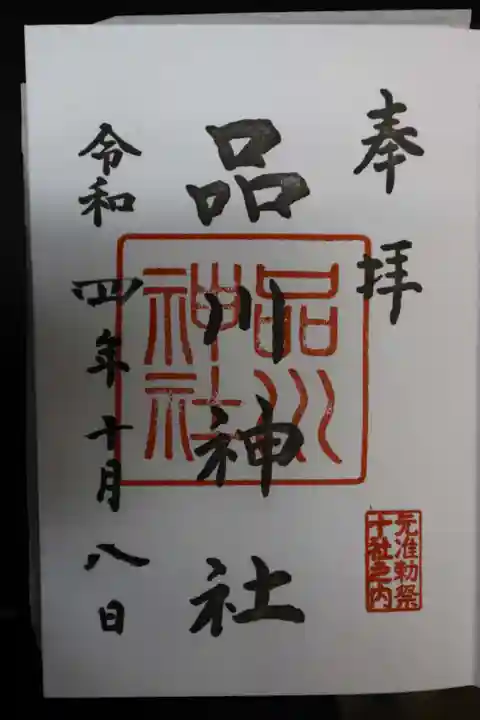 奉拝
元准勅祭
十社之内
品川神社
品川
神社
令和四年十月八日